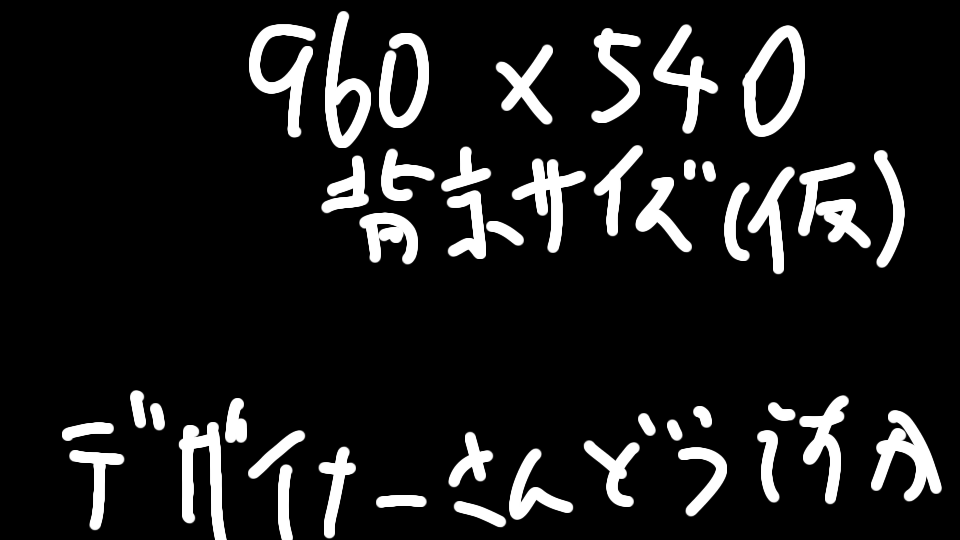 960×540
背景サイズ(仮)
デザイナーさんどうですか